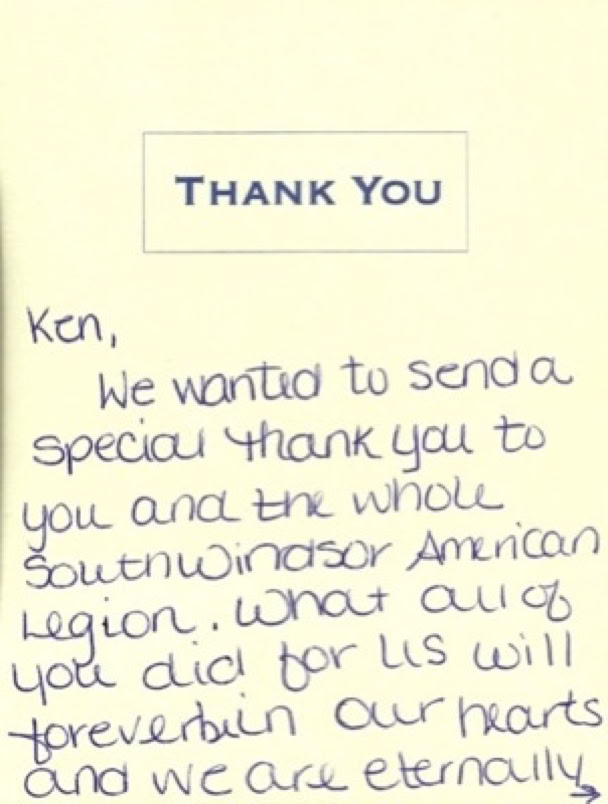 THANK YOU
Ken,
We wanted to send a
special thank you to
you and the whole
South Windsor American
Legion. What all of
you did for us will
forever be in our hearts
and we are eternally
→